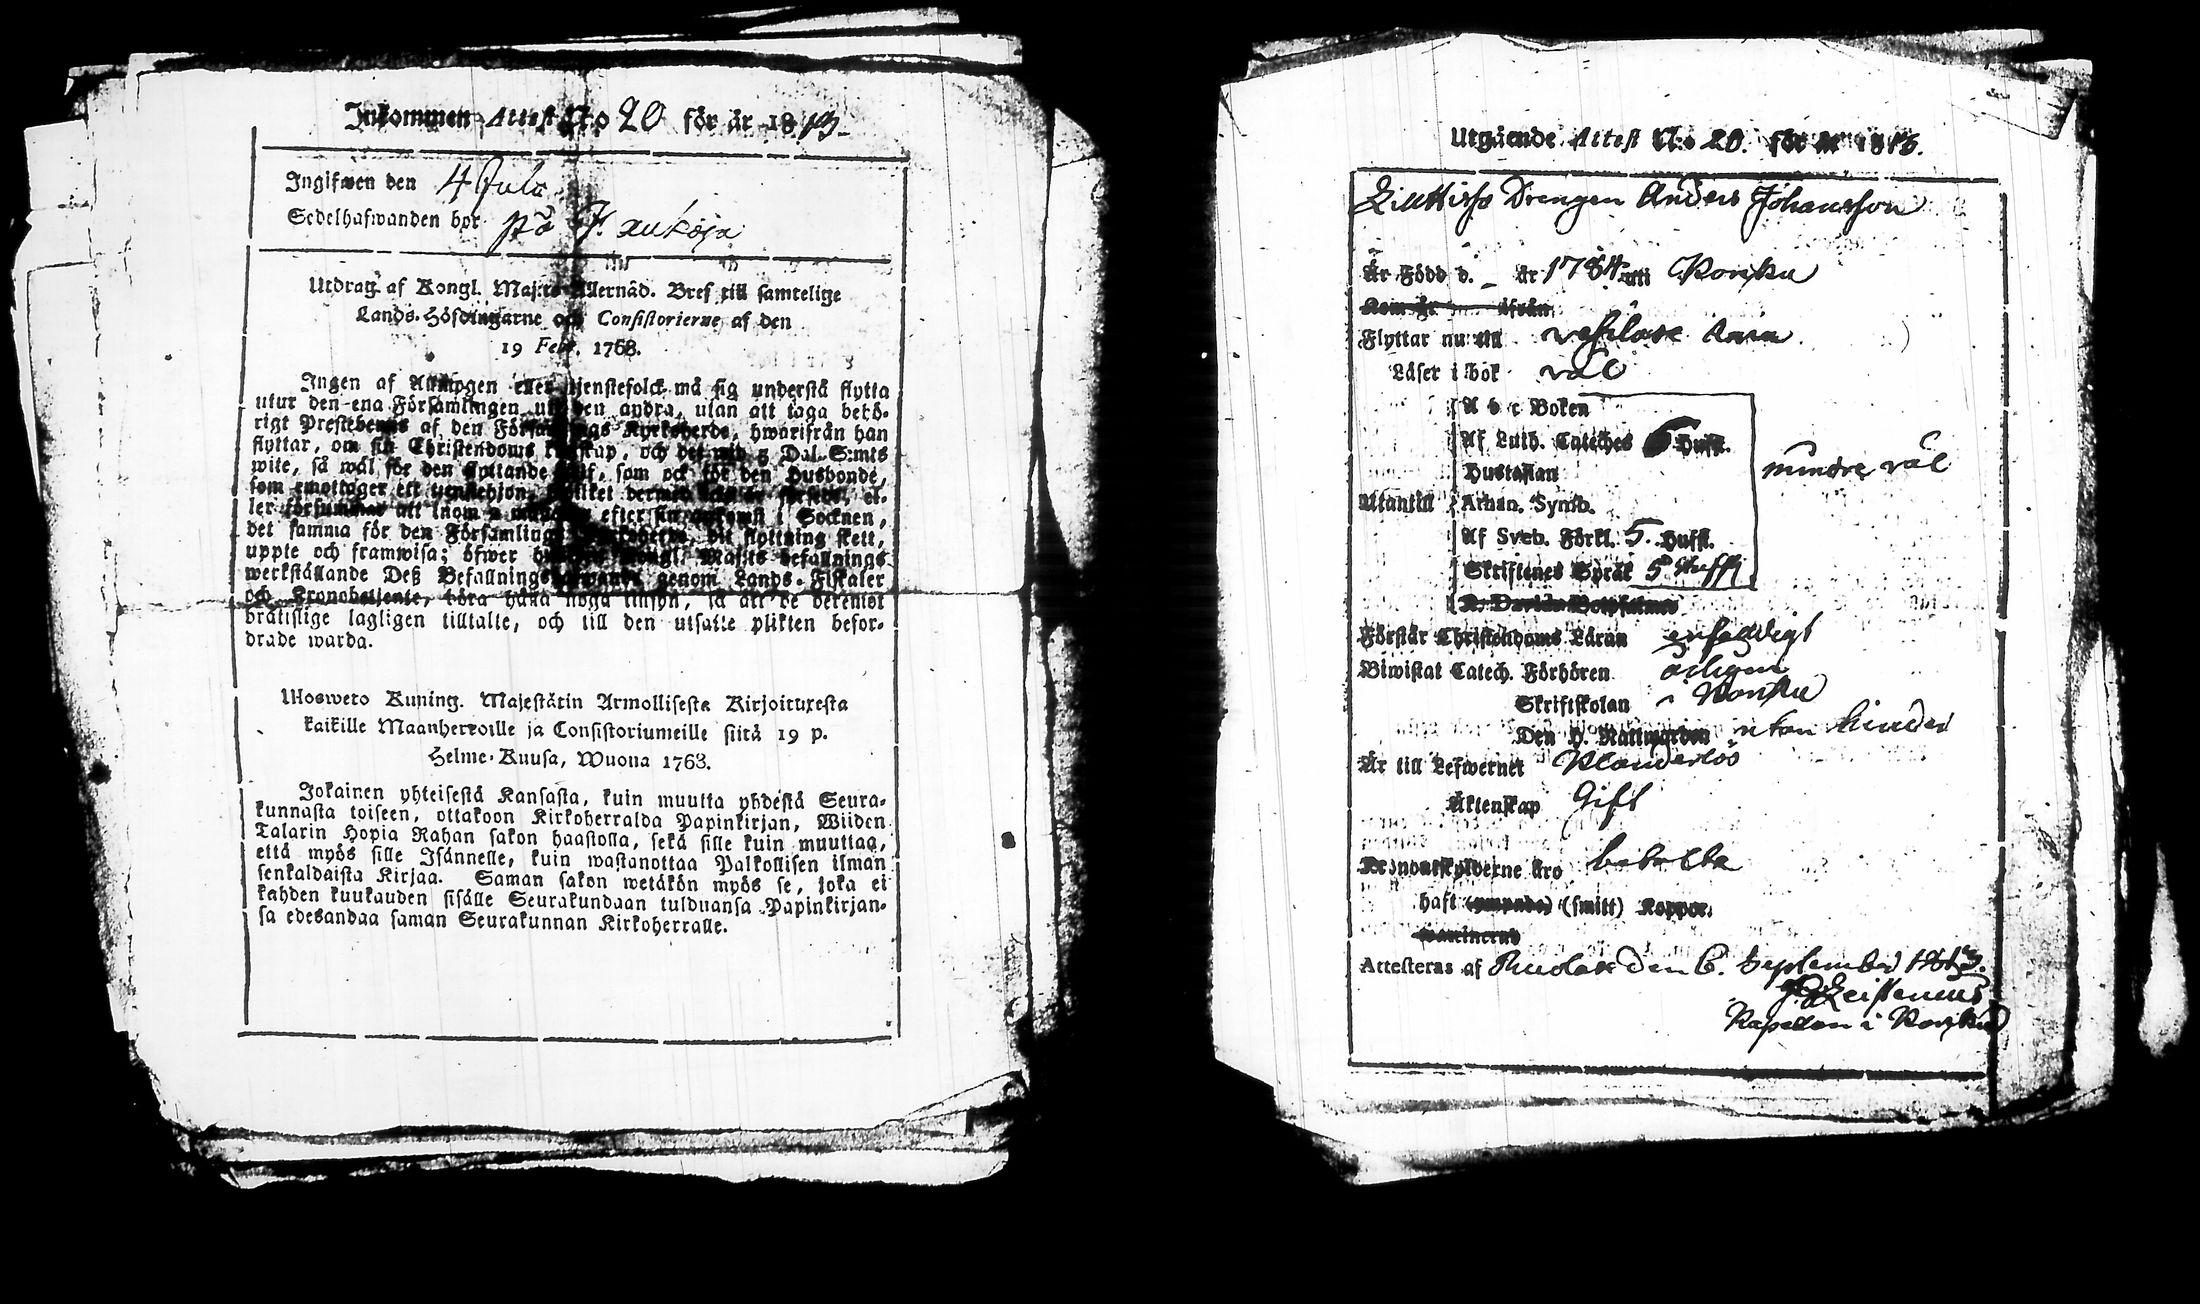 Inkommen Attest N:o 20 för år 1813.
Ingifwen den 4 Jula
Sedelhafwanden bor på
Utdrag af Kongl. Maj:ts Allernåd. Bref till samtelige
Lands-Höfdingarne och Consistorierne af den
19 Febr. 1768.
Ingen af Allmogen eller tjenstefolck må sig understå flytta
utur den ena Församlingen uti den andra, utan att taga behö-
rigt Prestebewis af den Församlings Kyrkoherde, hwarifrån han
flyttar, om sin Christendoms kunskap, och det wid 5 Dal. S:mts
wite, så wäl för den flyttande sielf, som ock för den Husbonde,
som emottager ett tjenstehjon, hwilket dermed icke är försedt, el-
ler försummar att inom 2 månader efter sin ankomst i Socknen,
det samma för den Församlings Kyrkoherde, dit flyttning skett,
uppte och framwisa; öfwer Kongl. Maj:ts befallnings
werkställande Deß Befallningshafwande genom Lands-Fiskaler
och Kronobetjente, böra hålla noga tillsyn, så att de deremot
brätislige lagligen tilltalte, och till den utsatte plikten befor-
drade warda.
Uloswето Kuning. Majestätin Armollisesta Kirjoituxesta
kaikille Maanherroille ja Consistoriumeille siitä 19 p.
Helme-Kuusa, Wuona 1763.
Jokainen yhteisestä Kansasta, kuin muutta yhdestä Seura-
kunnasta toiseen, ottakoon Kirkoherralda Papinkirjan, Wiiden
Talarin Hopia Rahan sakon haastolla, sekä sille kuin muuttaa,
että myös sille Isännelle, kuin wastanottaa Palkollisen ilman
senkaldaista Kirjaa. Saman sakon wetäkön myös se, joka ei
kahden kuukauden sisälle Seurakundaan tulduansa Papinkirjan-
sa edesandaa saman Seurakunnan Kirkoherralle.
Utgående Attest N:o 20. för år 1813.
Drengen Anders Johansson
Är Född d. _ år 1784 uti Pouku
Kom år ifrån
Flyttar nu till
Läser i bok väl
A b c Boken
Af Luth. Cateches 6 Hufst.
Hustaflan mindre väl
Utantill Athan. Symb.
Af Sveb. Förkl. 5. Hufst.
Skriftenes Språk 5 Huffst
K. Davids Botpsalmer
Förstår Christendoms Läran enfaldigt
Biwistat Catech. Förhören årligen
Skriftskolan i
Den H. Nattwarden utan hinder
Är till Lefwernet Klanderlös
Äktenskap Gift
Kronoutskylderne äro betalta
haft (ympade) (smitt) Koppor.
waccinerad
Attesteras af den 6. September 1813.
Kapellan i